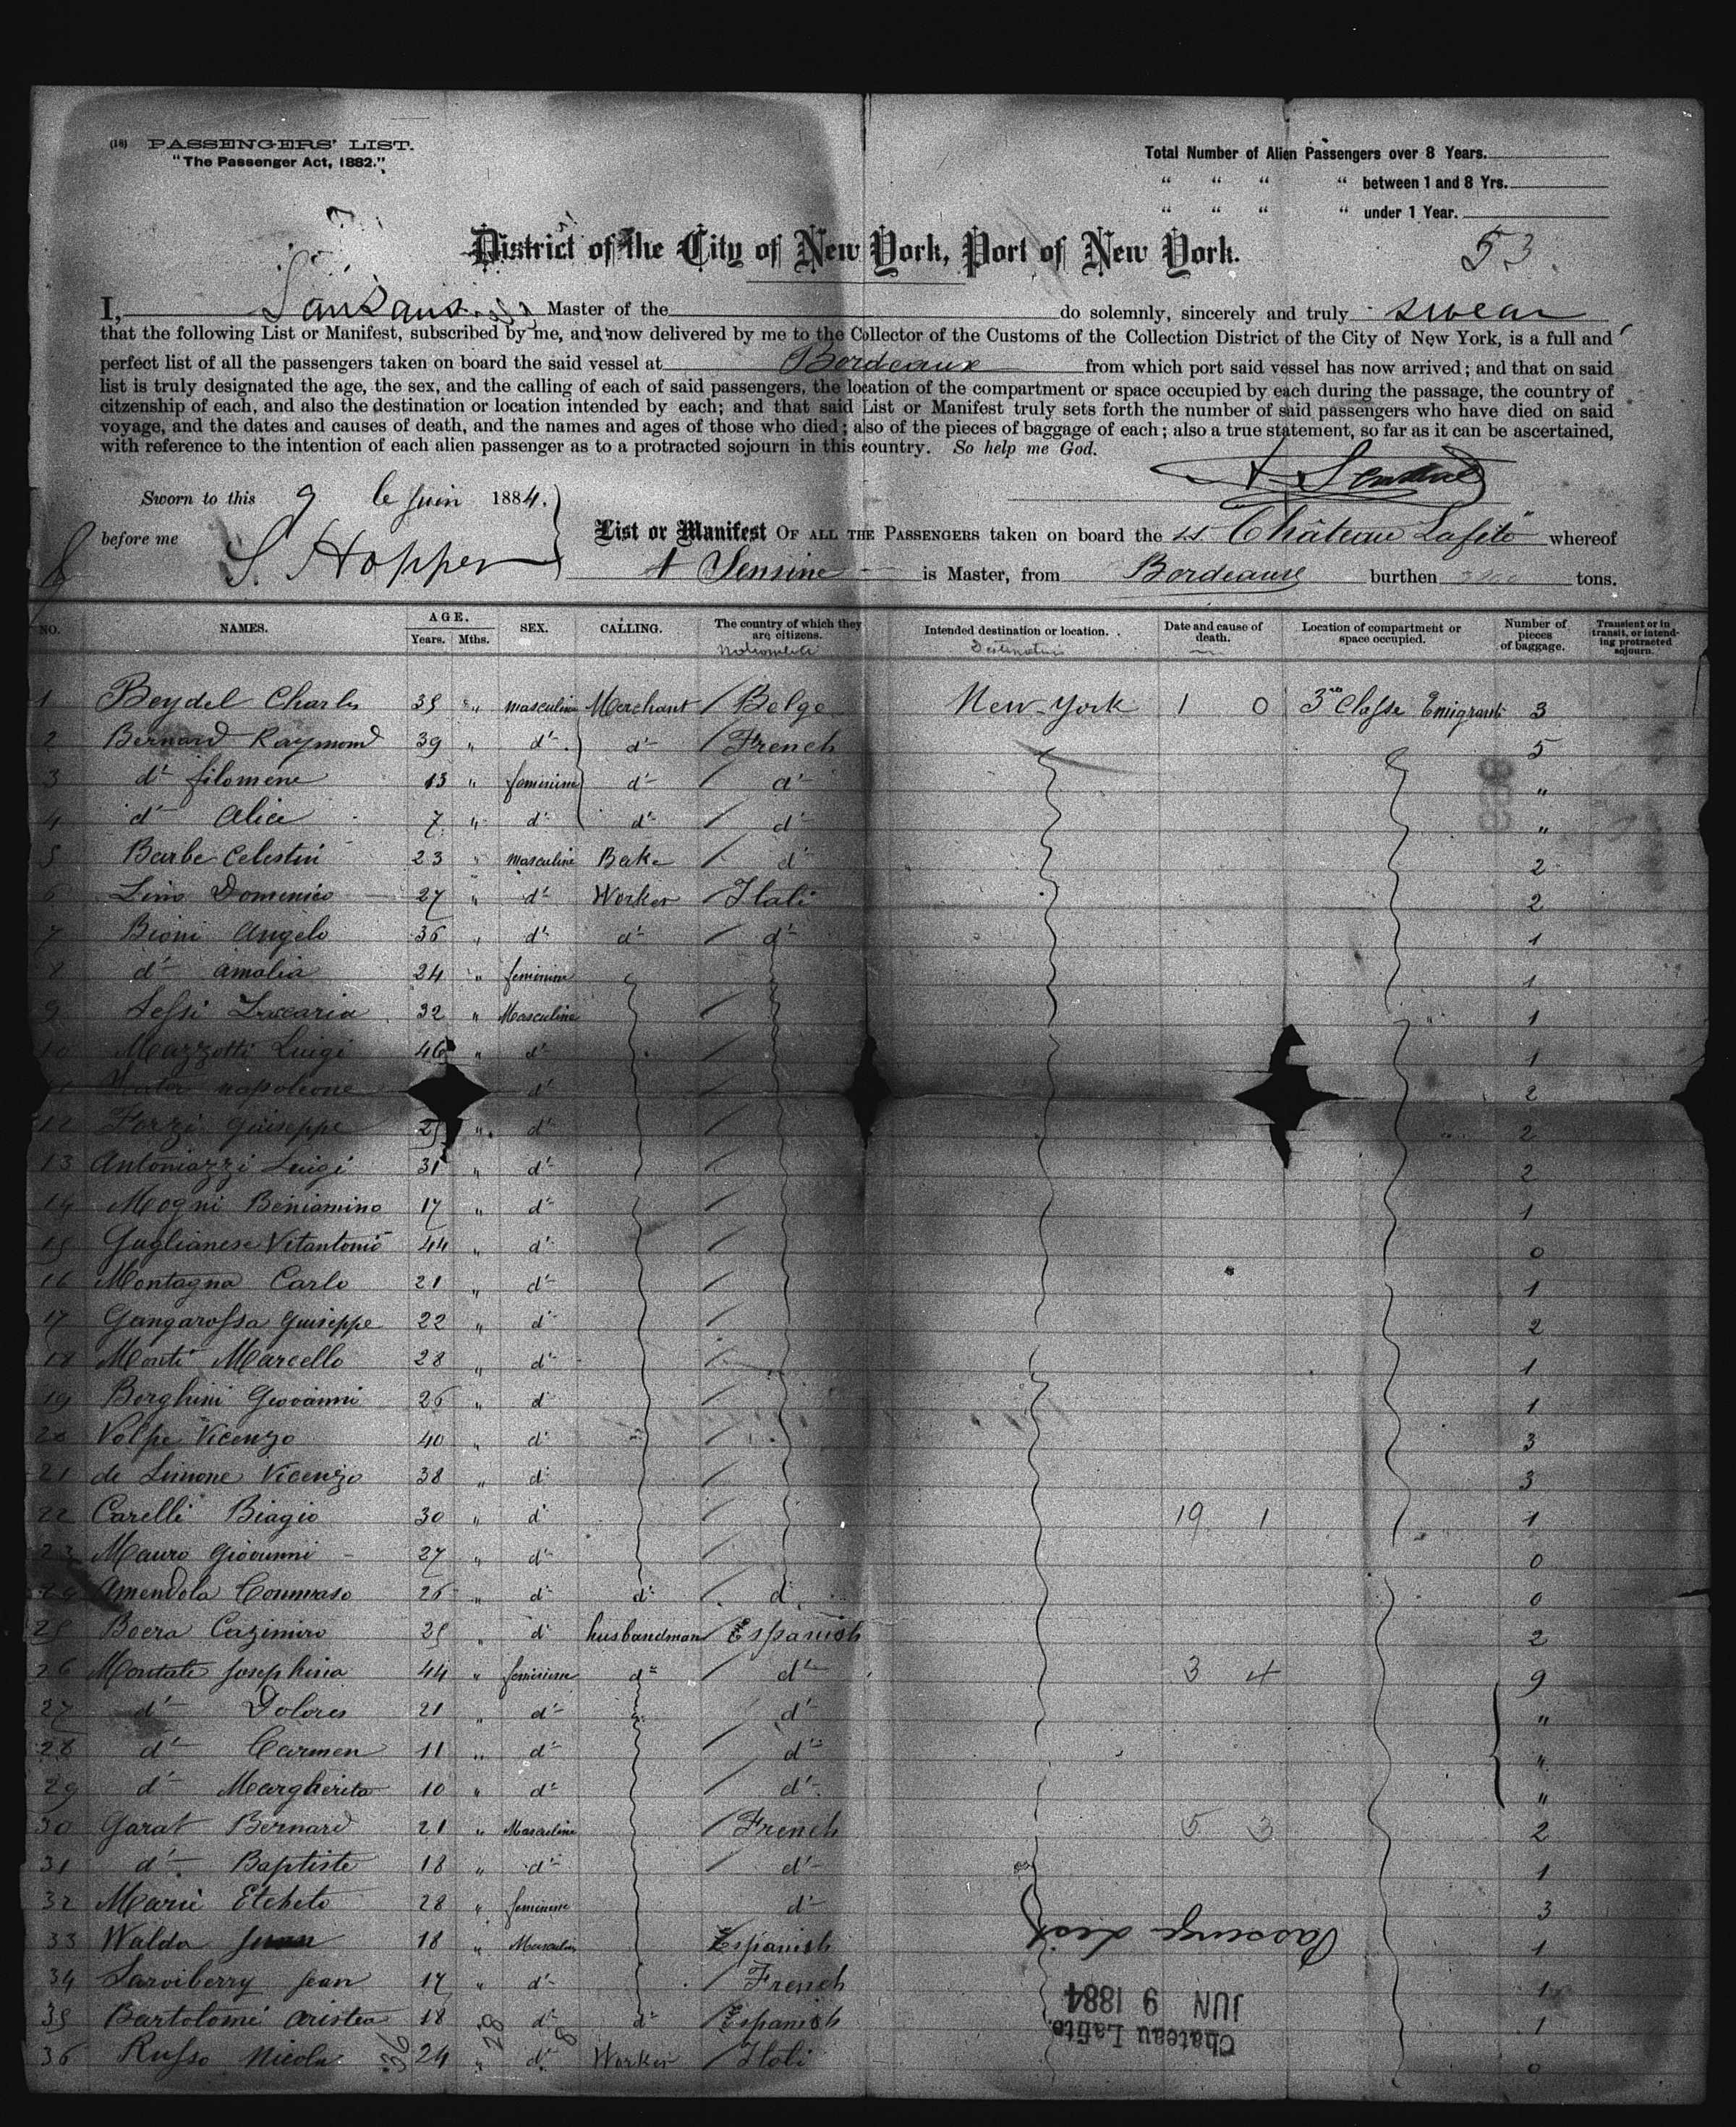 (16) PASSENGERS' LIST.
"The Passenger Act, 1882."
Total Number of Alien Passengers over 8 Years.
" " " " between 1 and 8 Yrs.
" " " " under 1 Year.
53
District of the City of New York, Port of New York.
I, Master of the do solemnly, sincerely and truly swear
that the following List or Manifest, subscribed by me, and now delivered by me to the Collector of the Customs of the Collection District of the City of New York, is a full and
perfect list of all the passengers taken on board the said vessel at Bordeaux from which port said vessel has now arrived; and that on said
list is truly designated the age, the sex, and the calling of each of said passengers, the location of the compartment or space occupied by each during the passage, the country of
citzenship of each, and also the destination or location intended by each; and that said List or Manifest truly sets forth the number of said passengers who have died on said
voyage, and the dates and causes of death, and the names and ages of those who died; also of the pieces of baggage of each; also a true statement, so far as it can be ascertained,
with reference to the intention of each alien passenger as to a protracted sojourn in this country. So help me God.
Sworn to this 9 de Juin 1884.
before me S Hopper
List or Manifest OF ALL THE PASSENGERS taken on board the ss Château Lafite whereof
A Sensine is Master, from Bordeaux burthen tons.
NO. NAMES. AGE. Years. Mths. SEX. CALLING. The country of which they are citizens. Intended destination or location. Date and cause of death. Location of compartment or space occupied. Number of pieces of baggage. Transient or in transit, or intending protracted sojourn.
1 Beydel Charles 35 " masculine Merchant / Belge New-York 1 0 3me Classe Emigrants 3
2 Bernard Raymond 39 " d° d° / French 5
3 d° filomene 13 " feminine d° / d° "
4 d° Alice 7 " d° d° / d° "
5 Barbe Celestin 23 " masculine Bake / d° 2
6 Domenico 27 " d° Worker / Itali 2
7 Bioni Angelo 36 " d° d° / d° 1
8 d° Amalia 24 " feminine 1
9 Zaccaria 32 " Masculine / 1
10 Mazzotti Luigi 46 " d° / 1
11 napoleone d° / 2
12 Forzi Guiseppe 25 " d° / 2
13 Antoniazzi Luigi 31 " d° / 2
14 Mogni Beniamino 17 " d° / 1
15 Guglianese Vitantonio 44 " d° / 0
16 Montagna Carlo 21 " d° / 1
17 Gangarossa Guiseppe 22 " d° / 2
18 Monti Marcello 28 " d° / 1
19 Borghini Giovanni 26 " d° / 1
20 Volpe Vicenzo 40 " d° / 3
21 de Simone Vicenzo 38 " d° / 3
22 Carelli Biagio 30 " d° / 19 1 1
23 Mauro Giovanni 27 " d° / 0
24 Amendola Tommaso 26 " d° d° / d° 0
25 Boera Cazimiro 25 " d° husbandman / Espanish 2
26 Montate Josephina 44 " feminine d° / d° 3 4 9
27 d° Dolores 21 " d° / d° "
28 d° Carmen 11 " d° / d° "
29 d° Margherita 10 " d° / d° "
30 Garat Bernard 21 " Masculine / French 5 3 2
31 d° Baptiste 18 " d° / d° 1
32 Marie Etcheto 28 " feminine d° 3
33 Walda Juan 18 " Masculin Espanish 1
34 Jean 17 " d° / French 1
35 Bartolomé Aristea 18 " d° d° / Espanish 1
36 Russo Nicola 24 " d° Worker / Itali 0
36 28 8
Passenger List
JUN 9 1884
Chateau Lafite.